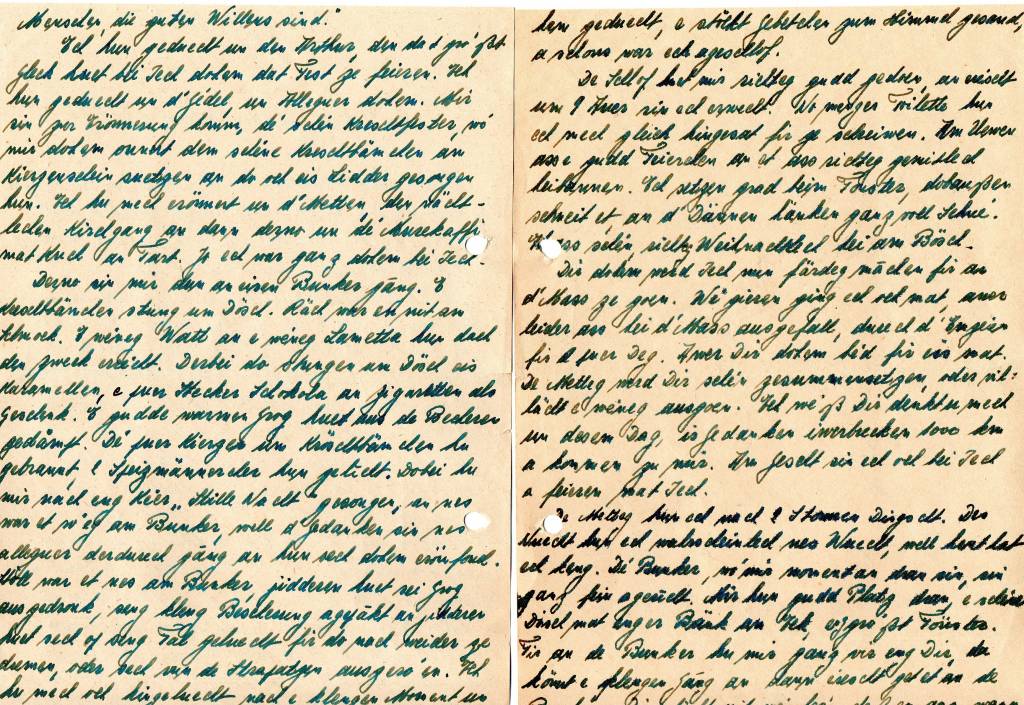 Menschen, die guten Willens sind."
Ech hun geduecht un den Arthur, den dat gro'ßt
Gleck huet bei Iech dohem dat Fest ze feieren. Ech
hun geduecht un d'Gidel, un Alleguer dohem. Mir
sin zur Erönnerung komm, de' schein Kreschtfester, wo'
mir dohem ronnt dem scheine Kreschtbämchen an
Kierzenschein suetzen an do och eis Lidder gesongen
hun. Ech hu mech erönnert un d'Metten, den nächt-
lechen Kirchgang an dann dezno un de' Ansekaffi
mat Kuch an Tart. Jo ech war ganz dohem bei Iech.
Dezno sin mir dun an eisen Bunker gäng. E
Kreschtbämchen stung um Dösch. Räch war en mit an
Schmock. E weneg Watt an e weneg Lametta hun dach
den Zweck erreicht. Derbei do stungen um Dösch eis
Karamellen, e puer Stecker Schokola an Zigaretten als
Geschenk. E gudde warmen Grog huet aus de Becheren
gedämpt. De' puer Kierzen um Kreschtbämchen hu
gebrannt, 2 Speizmännercher hun getudt. Dobei hu
mir nach eng Kier „Stille Nacht" gesongen, an nes
war et ro'eg am Bunker, well d'Gedanken sin nes
alleguer derduech gäng an hun sech dohem erömfond.
Stöll war et nes am Bunker, jidderen huet sei Grog
ausgedronk, seng kleng Bescherung agepakt an jidderen
huet sech of seng Fal geluecht fir do nach weider ze
dremen, oder sech vun de Strapatzen auszero'en. Ech
hu mech och hingeluecht nach e klengen Moment un
hem geduecht, e stillt Gebetchen zum Himmel gesand,
a schons war ech ageschlof.
De Schlof huet mir richteg gudd gedoen, an eischt
um 9 Auer sin ech erwecht. No menger Toilette hun
ech mech gleich hingesat fir ze schreiwen. Am Uewen
ass e gudd Feierchen an et ass richteg gemitlech
heibannen. Ech setzen grad beim Fönster, dobaußen
schneit et, an d'Dännen hänken ganz voll Schne'.
Et ass schein, richteg Weihnachtlech hei am Bösch.
Dir dohem werd Iech nun färdeg mächen fir an
d'Mass ze goen. We' gieren ging ech och mat, awer
leider ass hei d'Mass ausgefall, duerch d'
fir e puer Deg. Awer Dir dohem bied fir eis mat.
De Metteg werd Dir schein zesummensetzen, oder vil-
lächt e weneg ausgoen. Ech we'ß Dir denkt u mech
un desem Dag, is Gedanken iwerbrecken 1000 km
a kommen zu mir. Am Geescht sin ech och bei Iech
a feieren mat Iech.
De Metteg hun ech nach 2 Stonnen Dingscht. Des
Nuecht hun ech wahrscheinlech nes Wuecht, well haut hat
ech keng. De' Bunker, wo' mir momentan dran sin, sin
ganz fein ageriicht. Mir hun gudd Platz dran, e scheine
Dösch mat enger Bänk an Eck, e gro'ßt Fönster.
Fir an de Bunker hu mir ganz vir eng Dir, da
könnt e klengen Gang an dann eischt get et an de